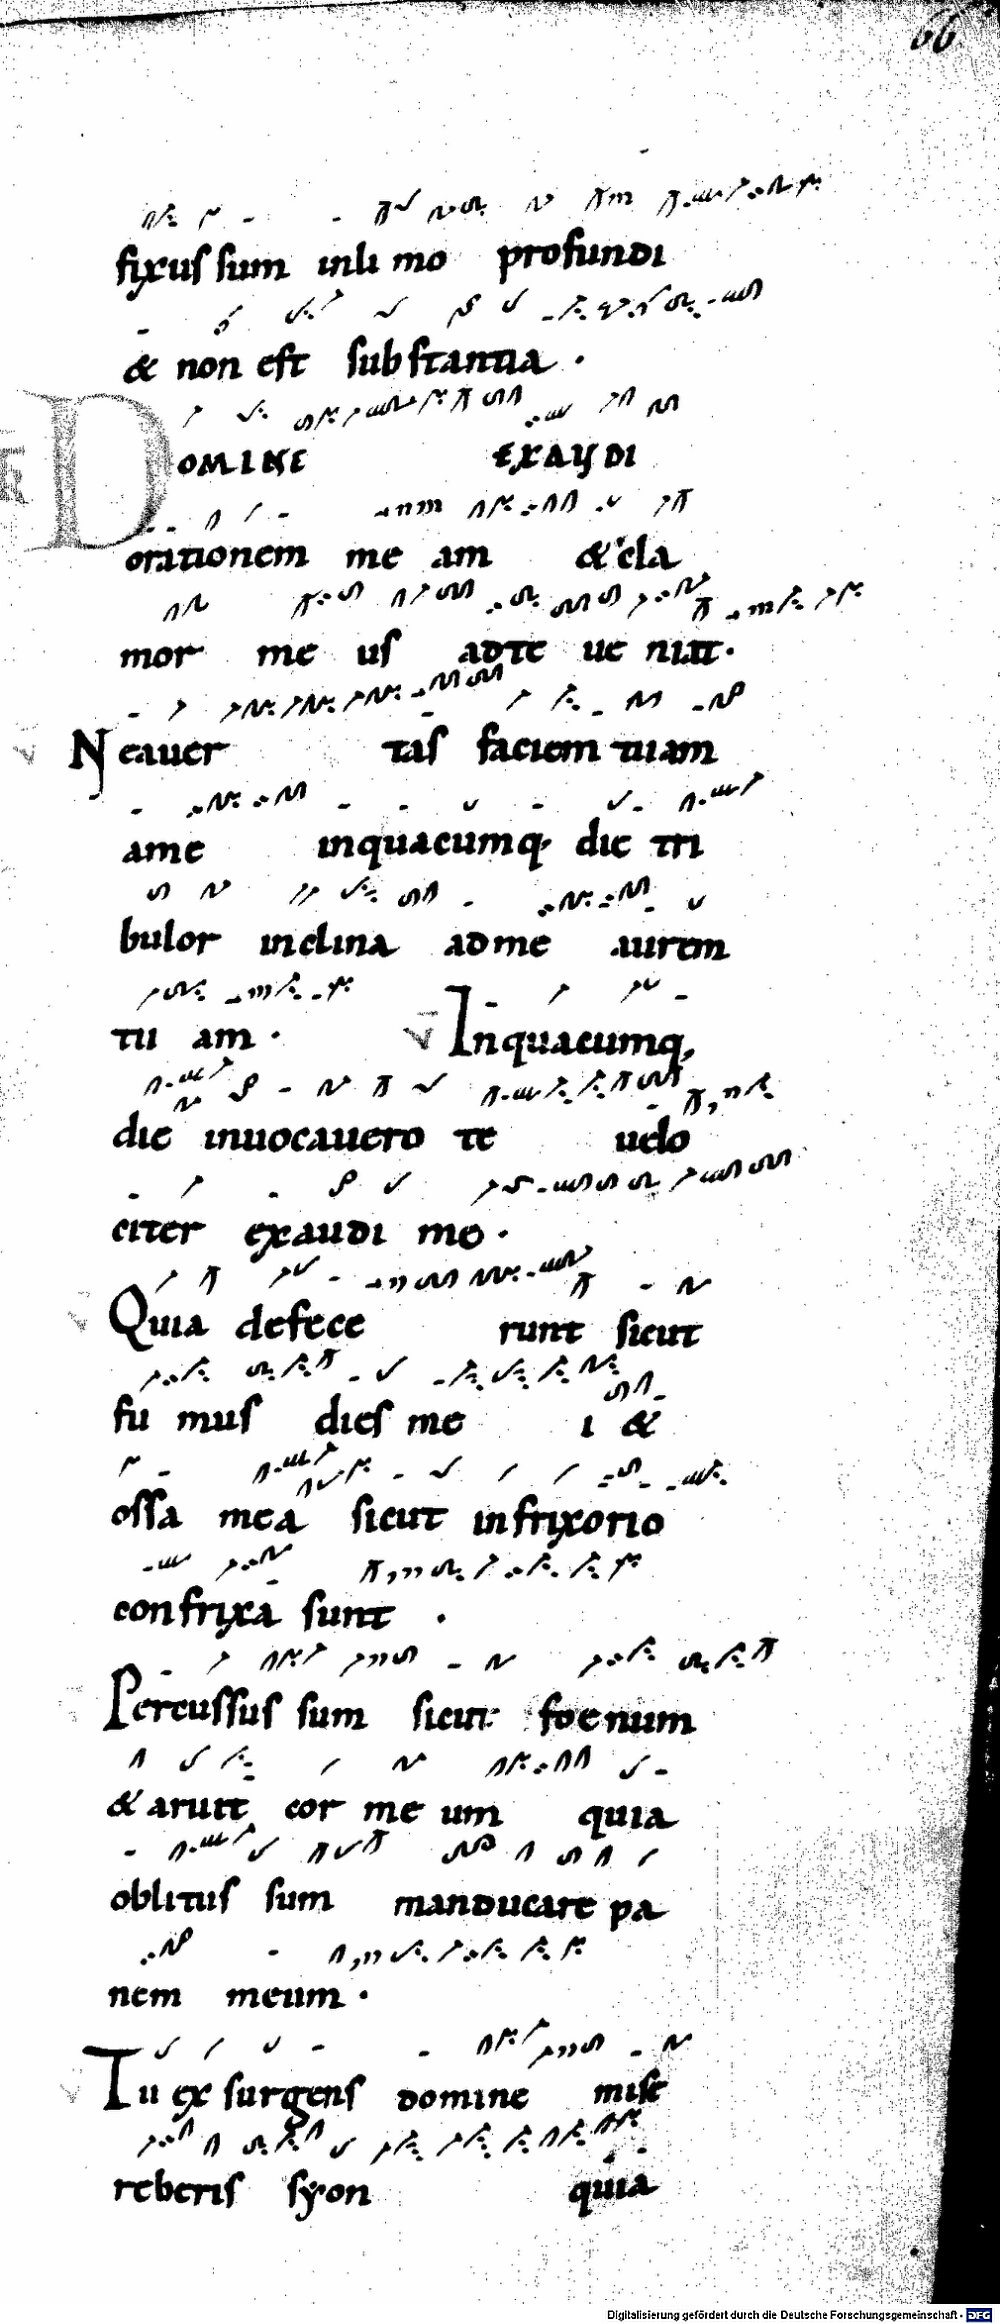 66
fixus sum in li mo profundi
& non est substantia ·
DOMINE EXAUDI
orationem me am & cla
mor me us ad te ue niat·
Ne auer tas faciem tuam
a me in quacumq; die tri
bulor inclina ad me aurem
tu am · V In quacumq;
die inuocauero te uelo
citer exaudi me ·
Quia defece runt sicut
fu mus dies me i &
ossa mea sicut in frixorio
confrixa sunt ·
Percussus sum sicut foenum
& aruit cor me um quia
oblitus sum manducare pa
nem meum ·
Tu exsurgens domine mise
reberis syon quia
Digitalisierung gefördert durch die Deutsche Forschungsgemeinschaft - DFG